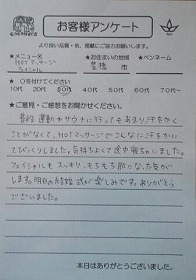 お客様アンケート
より良い品質・色、掲載にご協力お願いします。
★メニュー名 ★お住まいの地域 ★ペンネーム
HOTマッサージ
フェイシャル 豊橋 市
★○を付けてください
10代 20代 30代 40代 50代 60代 70代 80代
★ご意見・ご感想をお聞かせください。
普段 運動やサウナに行ってもあまり汗をかく
ことがなくて、HOTマッサージでこんなに汗をかいて
びっくりしました。気持ちよくて途中寝ちゃいました。
フェイシャルも スッキリ、もちもち肌になった気が
します。明日の結婚式が楽しみです。ありがとう
ございました。
本日はありがとうございました。